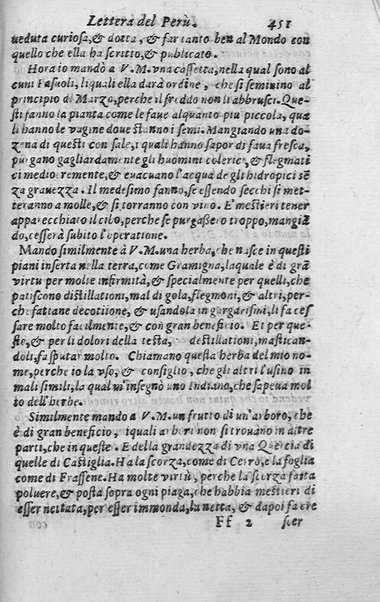 Lettera del Perù. 451
ueduta curiosa,& dotta, & far tanto ben al Mondo con
quello che ella ha scritto,& publicato.
Hora io mandò a V.M.vna cassetta,nella qual sono al
cuni Fasuoli, i quali ella darà ordine, che si seminino al
principio di Marzo,perche il freddo non li abbrusci. Que
sti fanno la pianta come le faue alquanto piu piccola, qua
li hanno le vagine doue stanno i semi. Mangiando una do
zena di questi con sale,i quali hanno sapor di faua fresca,
purgano gagliardamente gli huomini colerici,& flegmati
ci mediocremente,& euacuano l'acqua de gli hidropici sẽ
za grauezza. Il medesimo fanno,se essendo secchi si met-
teranno a molle,& si torranno con vino. E' mestieri tener
apparecchiato il cibo,perche se purgassero troppo,mangiã
do,cesserà subito l'operatione.
Mando similmente à V.M.una herba, che nasce in questi
piani inserta nella terra,come Gramigna,laquale è di grã
virtu per molte infirmità,& specialmente per quelli, che
patiscono distillationi,mal di gola,flegmoni,& altri,per-
che fattane decottione, & usandola in gargarismi,li fa ces
sare molto facilmente,& con gran beneficio. Et per que-
sto,& per li dolori della testa, destillationi, mastican-
doli,fa sputar molto. Chiamano questa herba del mio no-
me,perche io la vso, & consiglio, che gli altri l'usino in
mali simili,la qual m'insegnò uno Indiano,che sapeua mol
to dell'herbe.
Similmente mando a V.M.un frutto di un'arboro, che
è di gran beneficio, iquali arbori non si trouano in altre
parti,che in queste. E della grandezza di vna Quercia di
quelle di Castiglia. Ha la scorza,come di Cerro,e la foglia
come di Frassene. Ha molte virtù, perche la scorza fatta
poluere,& posta sopra ogni piaga,che habbia mestieri di
esser nettata,per esser immonda,la netta, & dapoi fa cre
Ff 2 scer